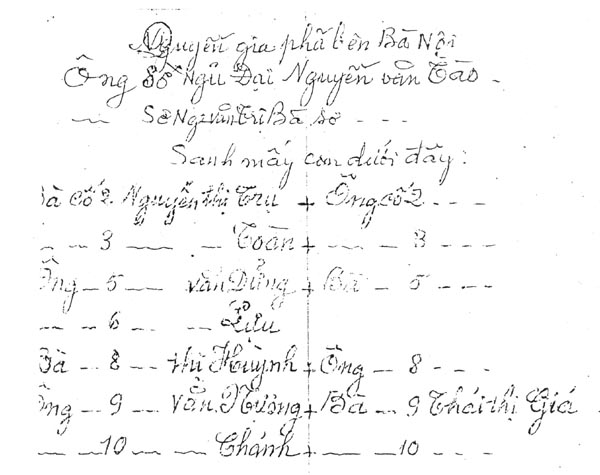 Nguyễn gia phã bên Bà Nội
Ông Sơ Ngũ Đại Nguyễn văn Tào -
~ Sơ Ng văn Trị Bà sơ - - -
Sanh mấy con dưới đây:
Bà cố 2 Nguyễn thị Trụ + Ông cố 2 - - -
~ ~ 3 ~ ~ Toàn + ~ ~ 3 - - -
Ông - 5 ~ văn Dủng + Bà - 5 - - -
~ ~ 6 - ~ Lựu
Bà - 8 - thị Huỳnh + Ông - 8 - - -
Ông - 9 - văn Nương + Bà - 9 Thái thị Giá
~ ~ 10 ~ ~ Chánh + ~ 10 - - -